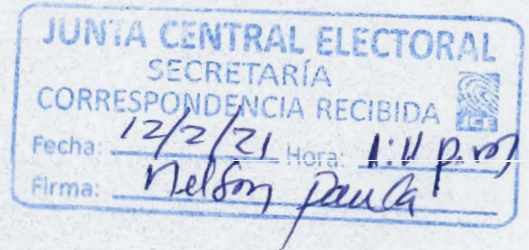 JUNTA CENTRAL ELECTORAL
SECRETARÍA
CORRESPONDENCIA RECIBIDA
JCE
Fecha: 12/2/21 Hora: 1:11 p.m
Firma: Nelson Paula